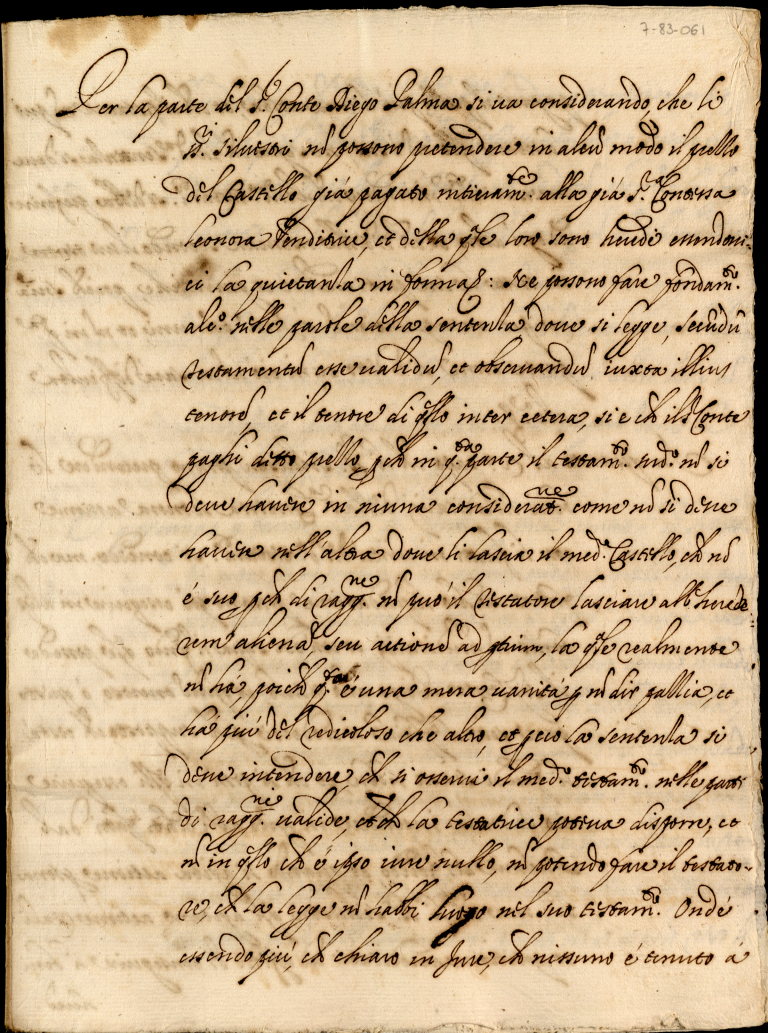 7-83-061
Per la parte del S.r Conte Diego Palma si va considerando, che li
SS.ri Silvestri nõ possono pretendere in alcũ modo il prezzo
del Castello già pagato intieram.te alla già S.ra Contessa
leonora, et della q̃le loro sono heredi essendoui-
ci la quietanza in forma: Ne possono fare fondam.to
alc.o nelle parole della sentenza doue si legge, secũdũ
testamentũ esse validũ, et obseruandũ iuxta illius
tenorẽ, et il tenore di q̃llo inter cetera, si è ch̃ il S.r Conte
paghi detto prezzo, p̃ch̃ in q.ta parte il testam.to sud.o nõ si
deue hauere in niuna considerat.ne come nõ si deue
hauere nell'altra doue li lascia il med.o Castello, ch̃ nõ
è suo p̃ch̃ di ragg.ne nõ può il testatore lasciare all'herede
rem alienã, seu actionẽ ad p̃tium, la q̃le realmente
nõ hà, poich̃ q.ta è una mera uanità p nõ dir pazzia, et
hà più del redicoloso che altro, et p̃ciò la sentenza si
deue intendere, ch̃ si osserui il med.o testam.to nelle parti
di ragg.ne ualide, et ch̃ la testatrice poteua disporre, et
nõ in q̃llo ch̃ è ipso iure nullo, nõ potendo fare il testato-
re, ch̃ la legge nõ habbi luogo nel suo testam.to Onde
essendo più, ch̃ chiaro in Jure, ch̃ nissuno è tenuto à